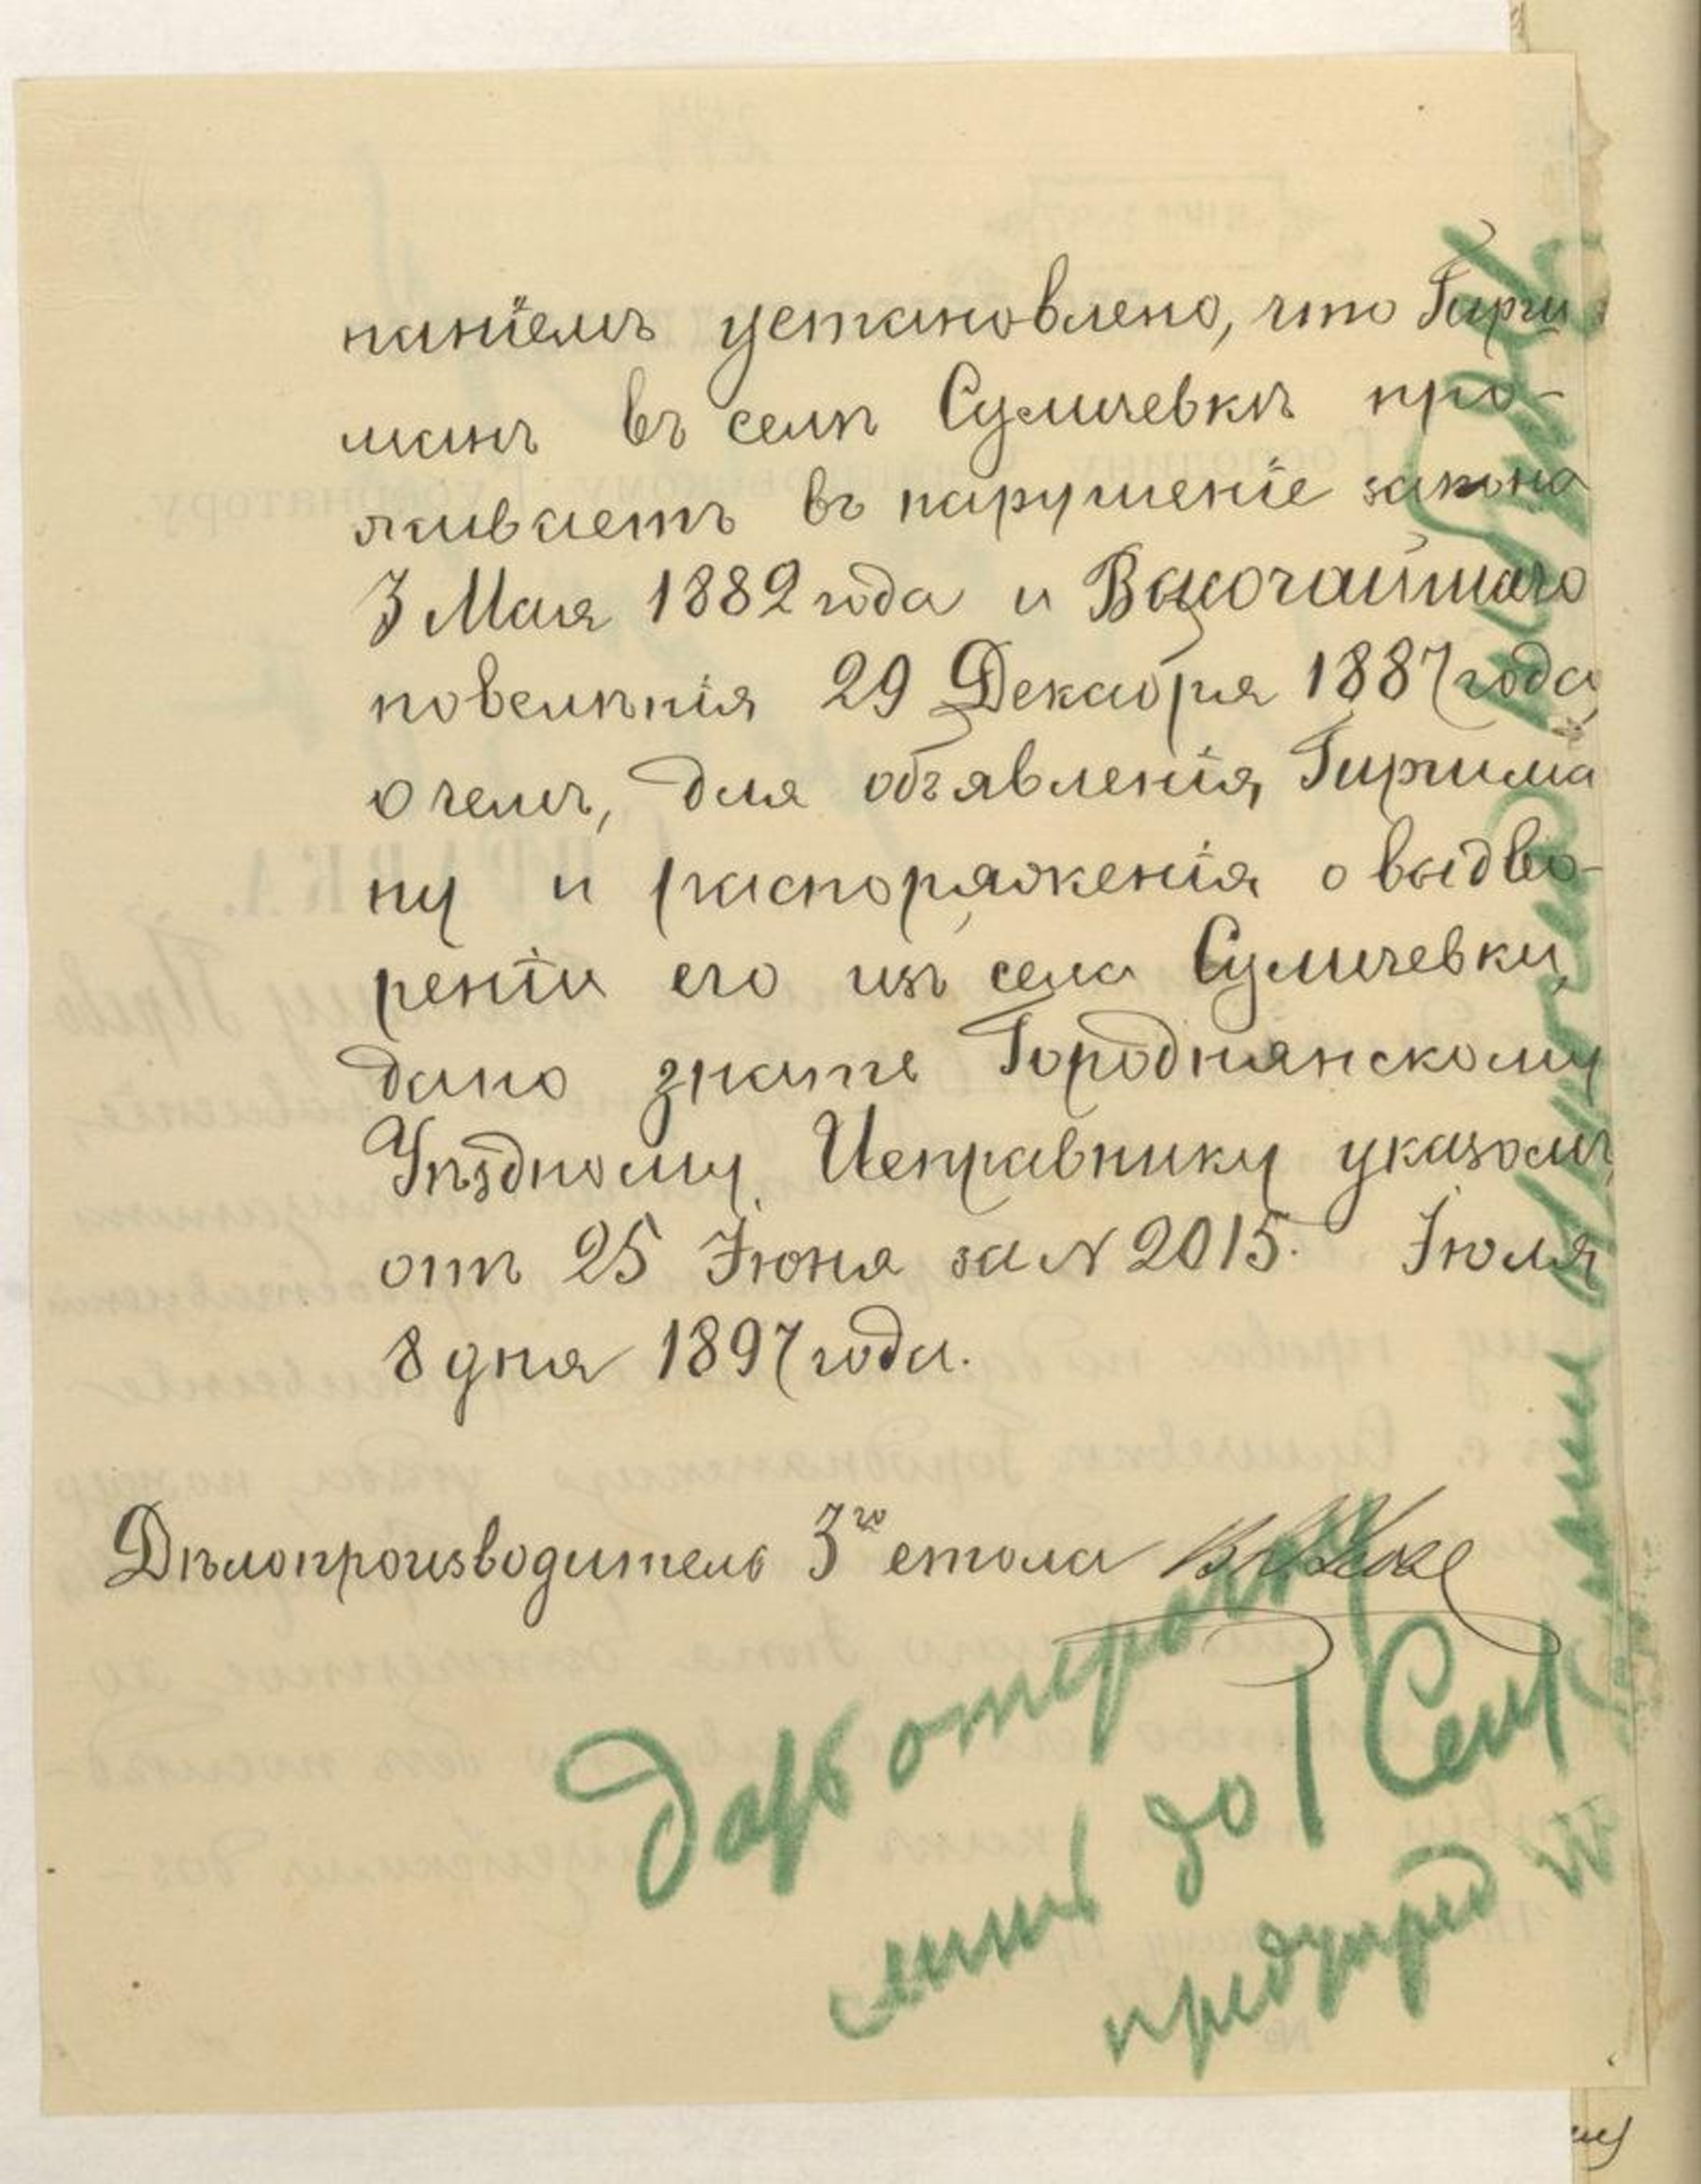 наніемъ установлено, что Гирши
манъ въ селѣ Сумичевкѣ про-
живаетъ въ нарушеніе закона
3 Мая 1882 года и Высочайшаго
повелѣнія 29 Декабря 1887 года
о чемъ, для объявленія Гиршма
ну и распоряженія о выдво-
реніи его изъ села Сумичевки,
дано знать Городнянскому
Уѣздному Исправнику указомъ
отъ 25 Іюня за N 2015. Іюля
8 дня 1897 года.
Дѣлопроизводитель 3го стола
Дать отсроч
до 1 Сент
предупред